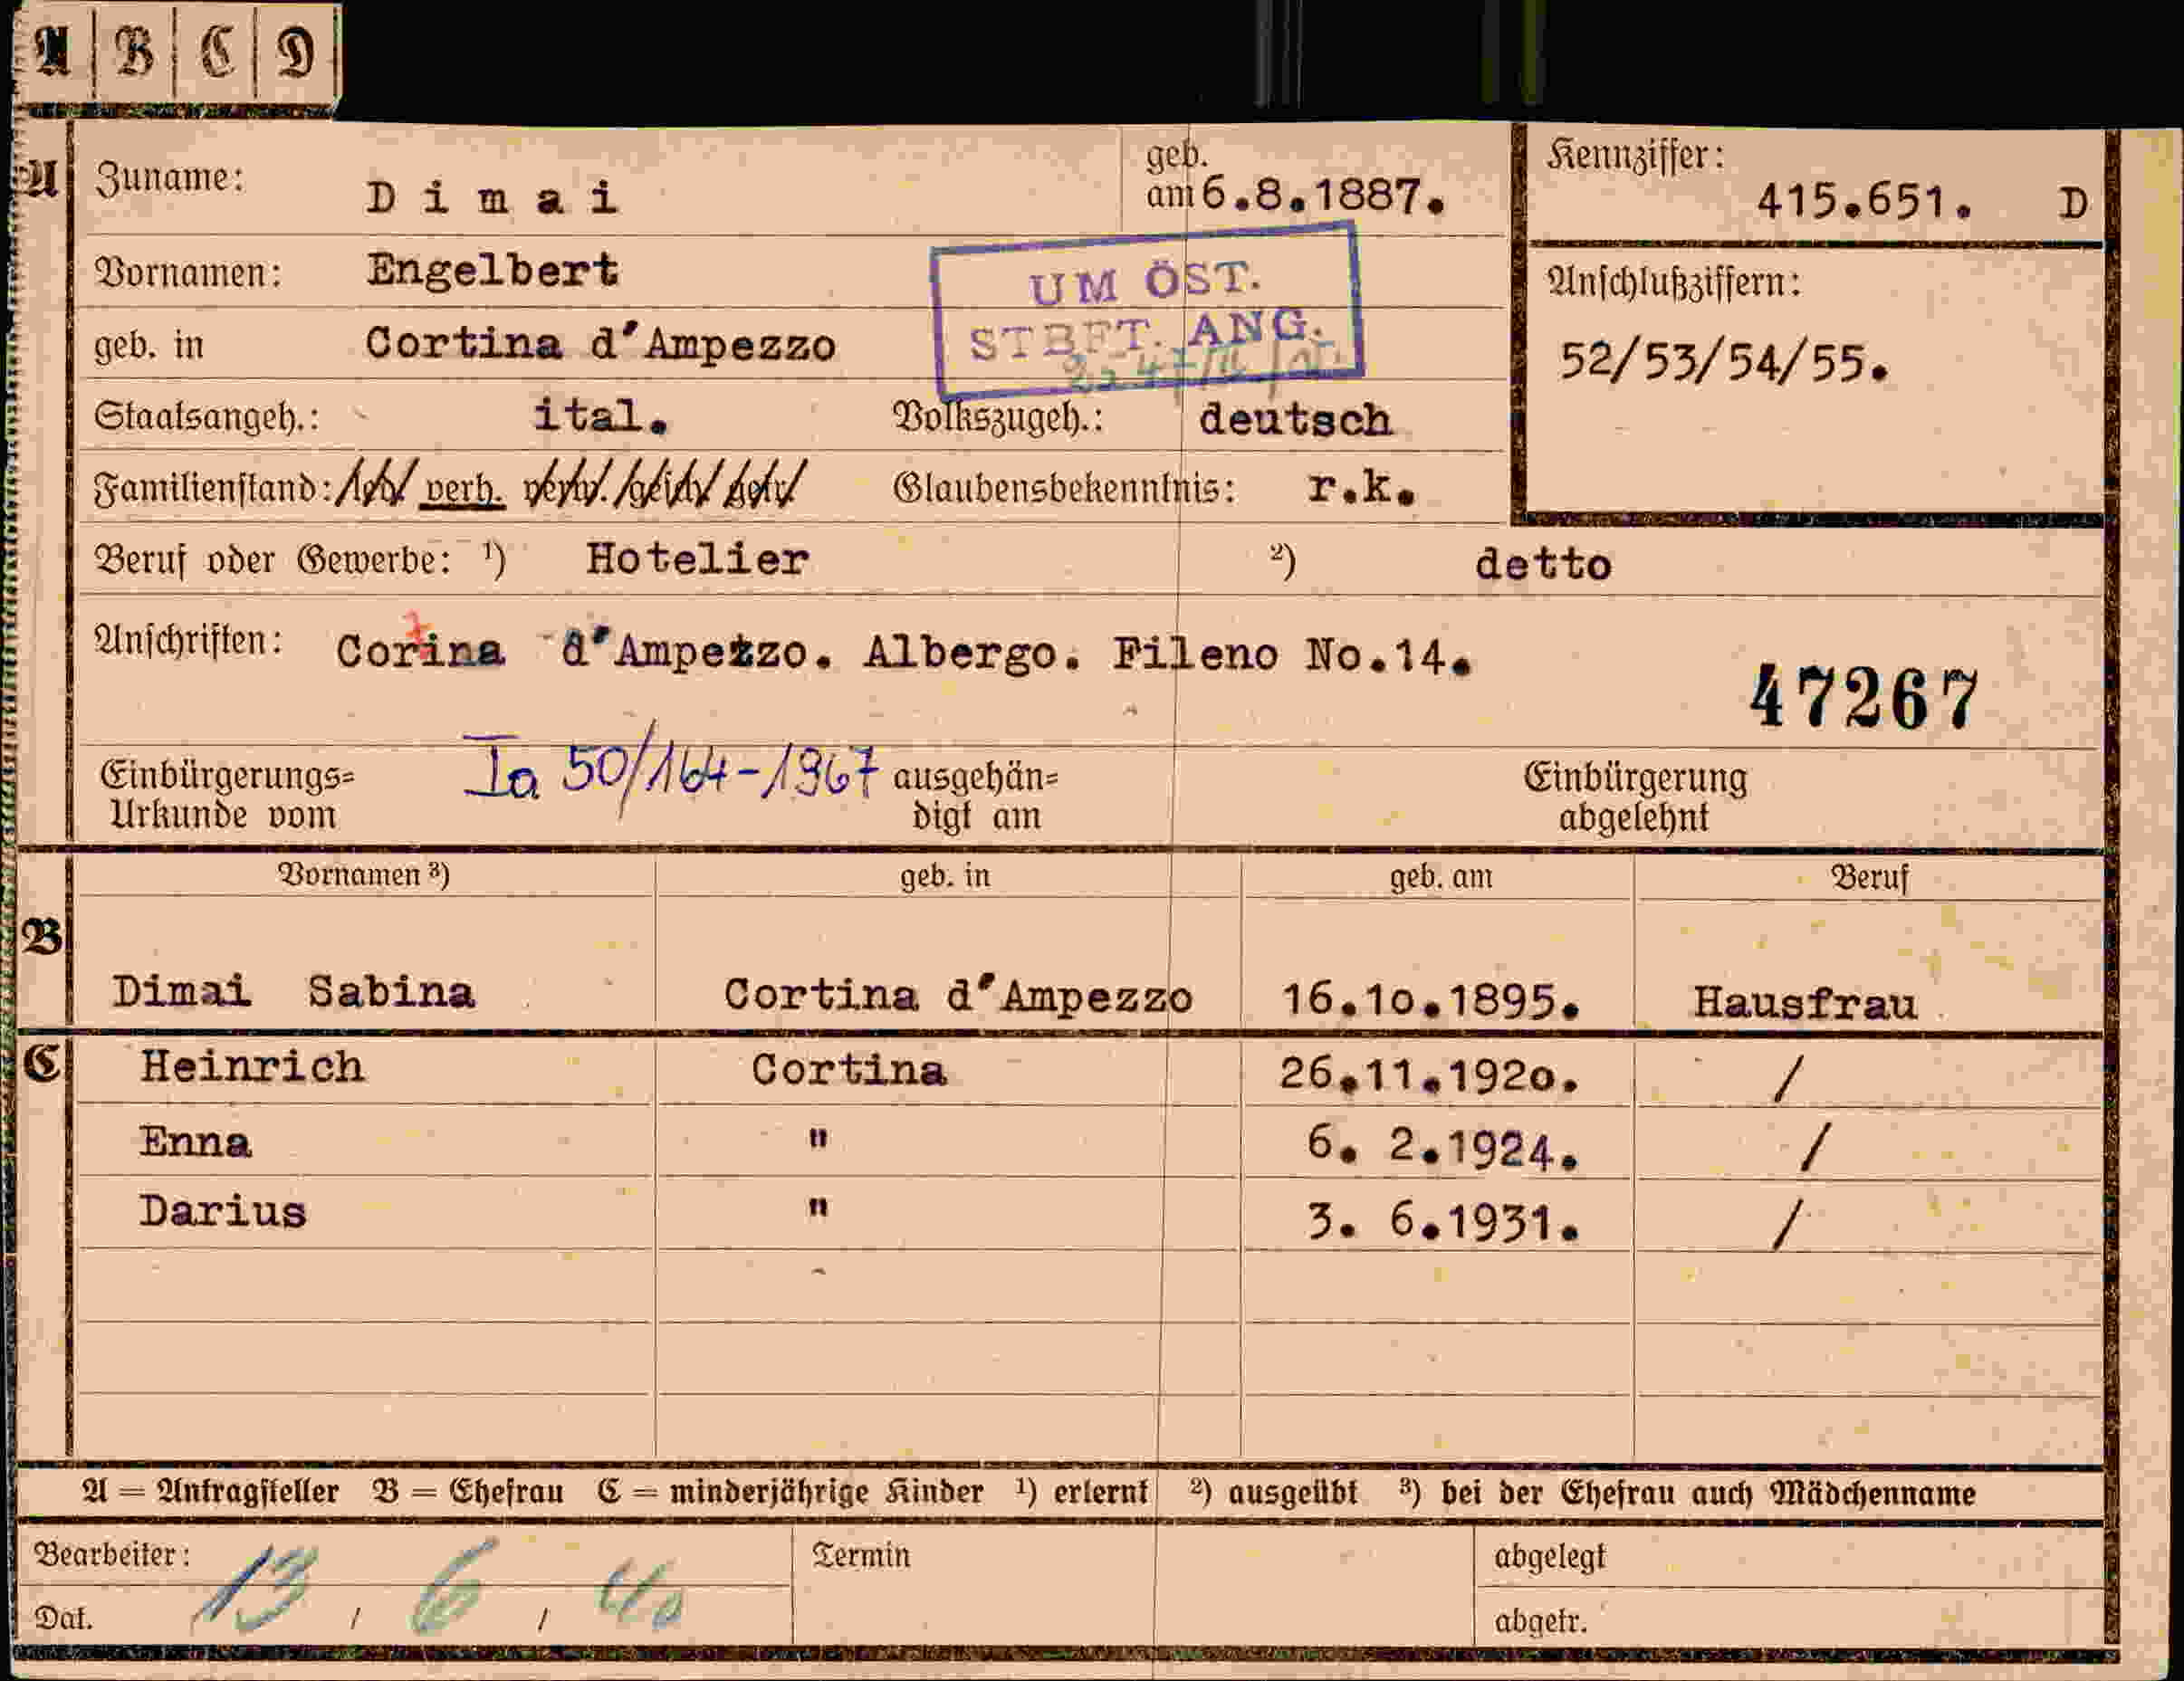 A B C D
A Zuname: Dimai geb. am 6.8.1887. Kennziffer: 415.651. D
Vornamen: Engelbert
UM ÖST. STBFT. ANG.
Anschlußziffern:
geb. in Cortina d'Ampezzo
52/53/54/55.
Staatsangeh.: ital. Volkszugeh.: deutsch
Familienstand: led. verh. verw. gesch. getr. Glaubensbekenntnis: r.k.
Beruf oder Gewerbe: ¹) Hotelier ²) detto
Anschriften: Cortina d'Ampezzo. Albergo. Fileno No.14.
47267
Einbürgerungs= Ia 50/164-1967 ausgehän= Einbürgerung
Urkunde vom digt am abgelehnt
Vornamen ³) geb. in geb. am Beruf
B
Dimai Sabina Cortina d'Ampezzo 16.10.1895. Hausfrau
C Heinrich Cortina 26.11.1920. /
Enna " 6. 2.1924. /
Darius " 3. 6.1931. /
A = Antragsteller B = Ehefrau C = minderjährige Kinder ¹) erlernt ²) ausgeübt ³) bei der Ehefrau auch Mädchenname
Bearbeiter: Termin abgelegt
Dat. 13 / 6 / 40 abgetr.